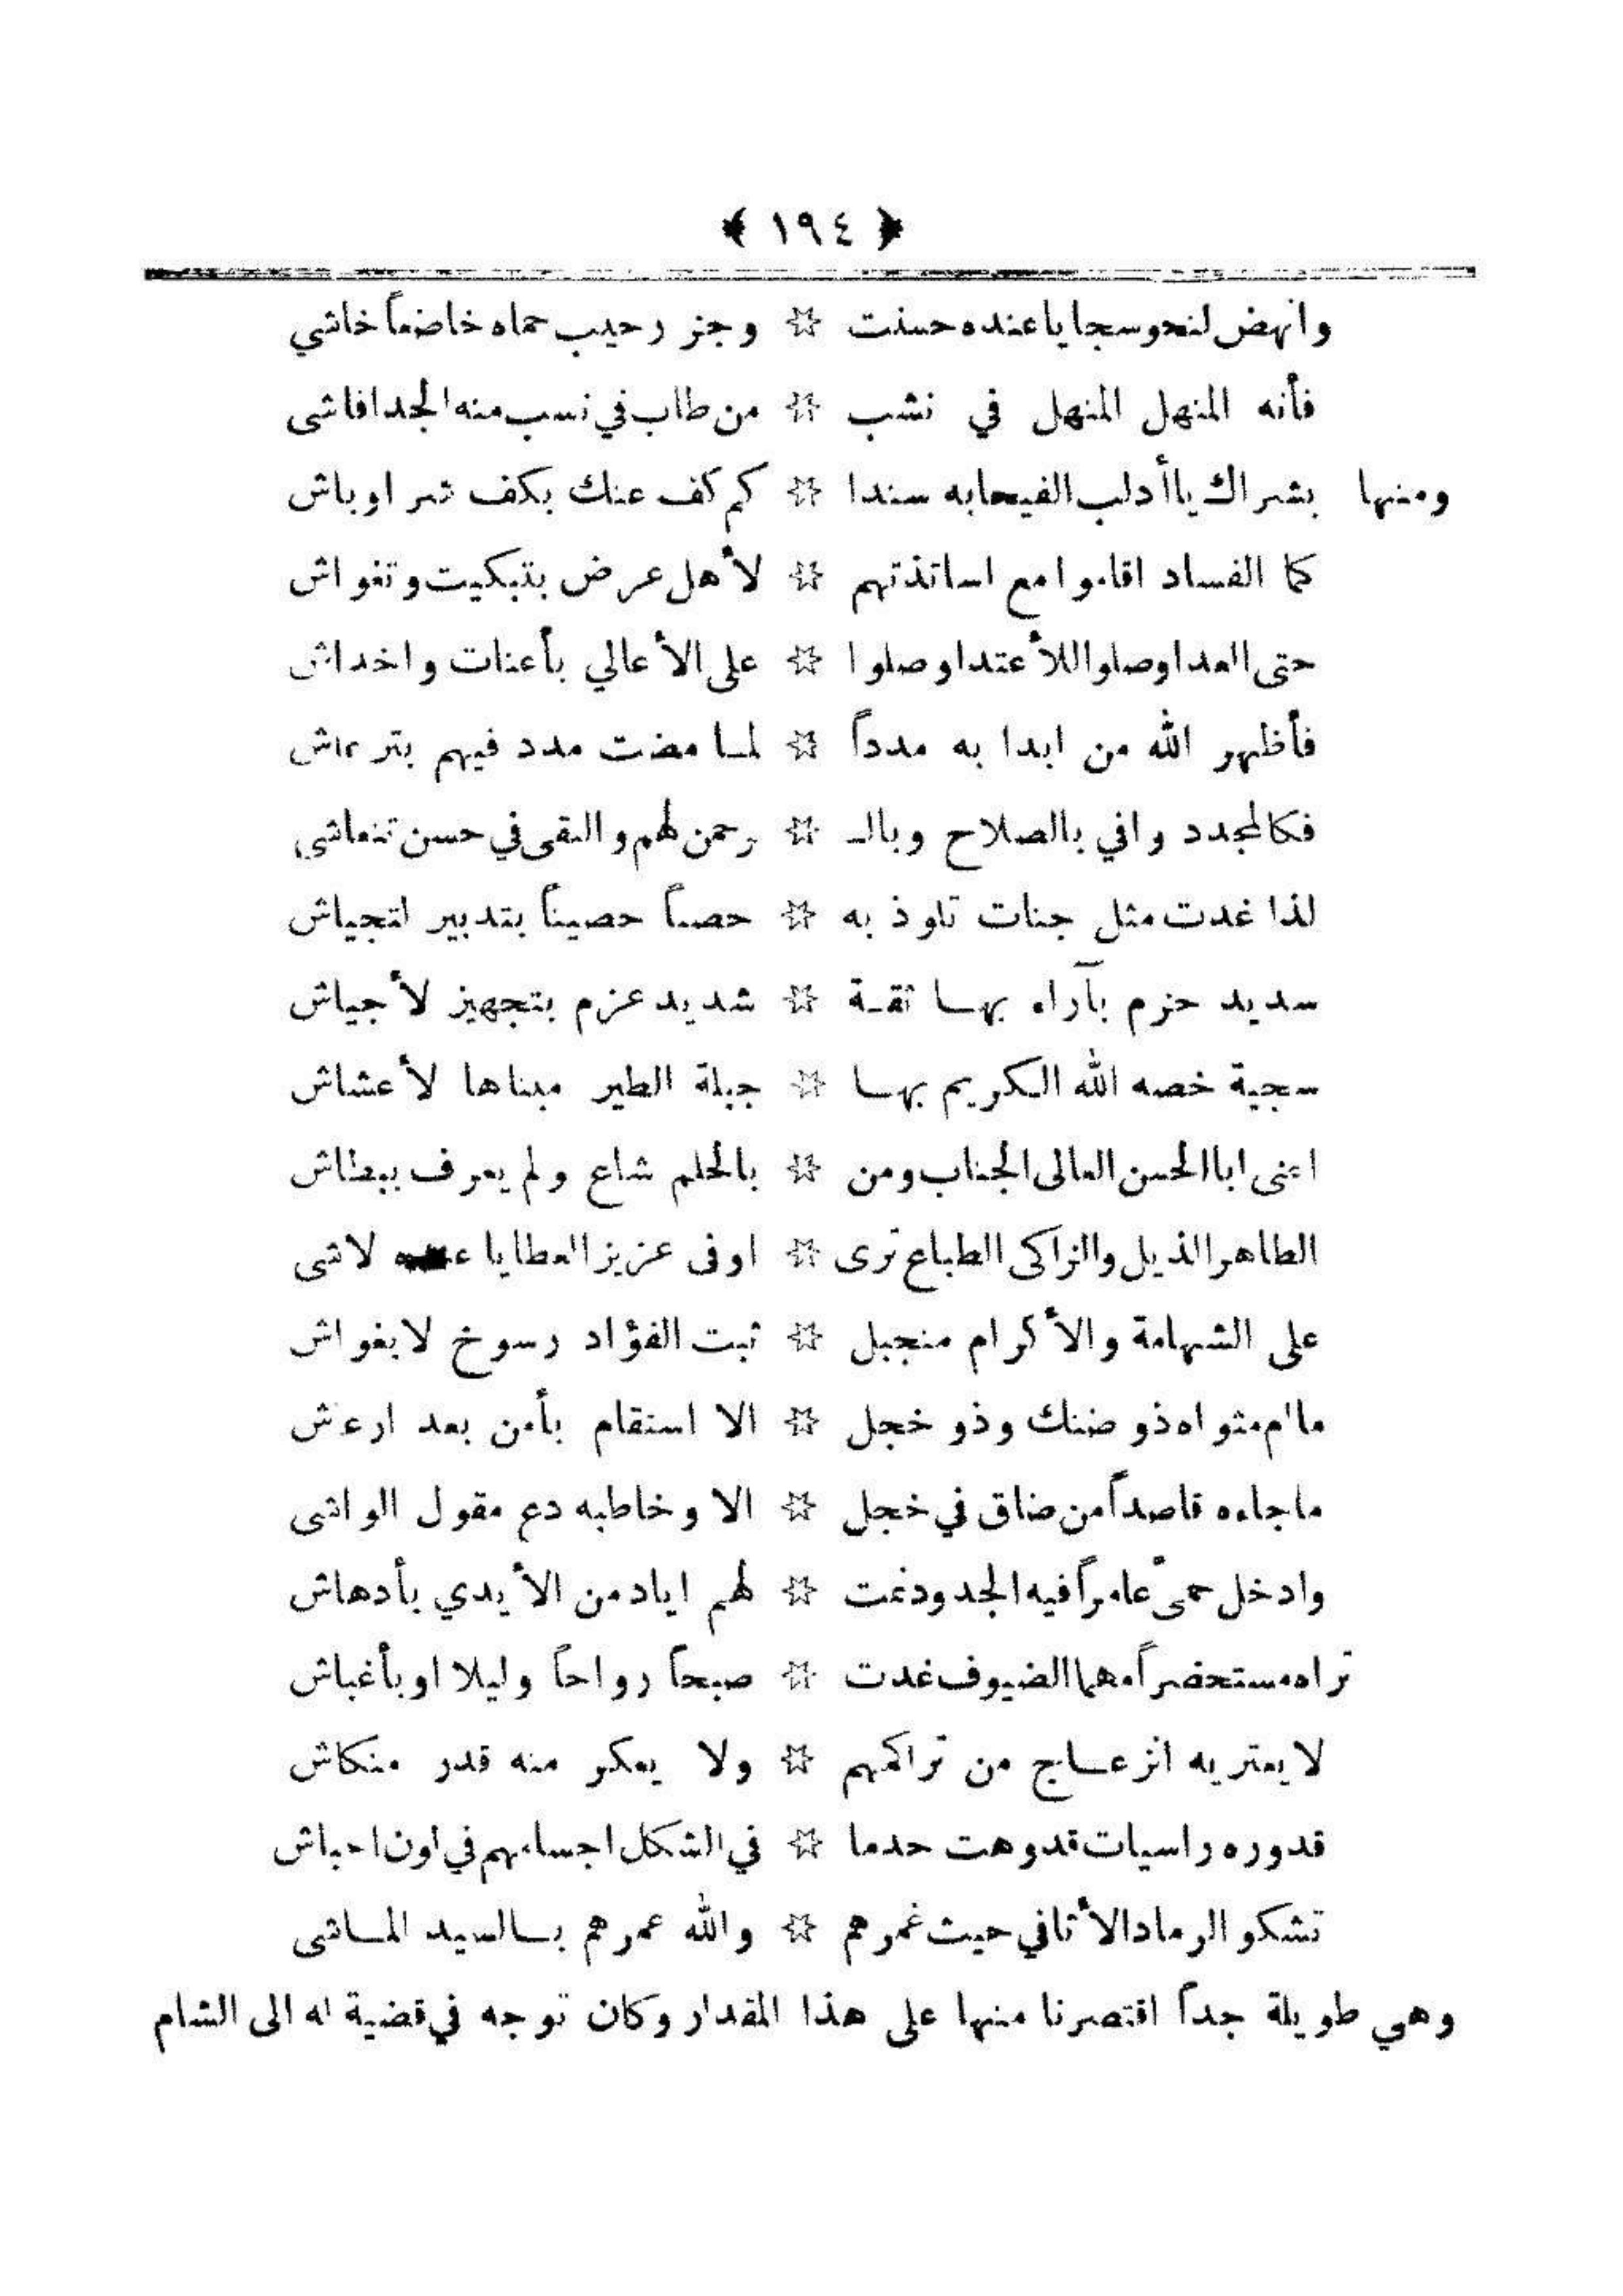 ﴿ ١٩٤ ﴾
وانهض لنحو سجايا عنده حسنت ☆ وجز رحيب حماه خاضعاً خاشي
فأنه المنهل المنهل في نشب ☆ من طاب في نسب منه الجدا فاشى
ومنها بشراك يا أدلب الفيحا به سندا ☆ كم كف عنك بكف شر اوباش
كما الفساد اقاموا مع اساتذتهم ☆ لأهل عرض بتبكيت وتغواش
حتى العدا وصلوا اللأعتدا وصلوا ☆ على الأعالي بأعنات واخداش
فأظهر الله من ابدا به مدداً ☆ لما مضت مدد فيهم
فكالمجدد وافي بالصلاح وبالـ ☆ رحمن لهم والتقى في حسن تنعاشى
لذا غدت مثل جنات تلوذ به ☆ حصناً حصيناً بتدبير لتجياش
سديد حزم بآراء بها ثقة ☆ شديد عزم بتجهيز لأجياش
سجية خصه الله الكريم بها ☆ جبلة الطير مبناها لأعشاش
اعنى ابا الحسن العالى الجناب ومن ☆ بالحلم شاع ولم يعرف ببطاش
الطاهر الذيل والزاكى الطباع ترى ☆ اوفى عزيز العطايا لاشى
على الشهامة والأكرام منجبل ☆ ثبت الفؤاد رسوخ لا بغواش
ما ام مثواه ذو ضنك وذو خجل ☆ الا استقام بأمن بعد ارعاش
ما جاءه قاصداً من ضاق في خجل ☆ الا وخاطبه دع مقول الواشى
وادخل حمىً عامراً فيه الجدود نمت ☆ لهم اياد من الأيدي بأدهاش
تراه مستحضراً مهما الضيوف غدت ☆ صبحاً رواحاً وليلا او بأغباش
لا يعتريه انزعاج من تراكمهم ☆ ولا يعكر منه قدر منكاش
قدوره راسيات قد وهت حدما ☆ في الشكل اجسامهم في لون احباش
تشكو الرماد الأثافي حيث غمرهم ☆ والله عمرهم بالسيد الماشى
وهي طويلة جداً اقتصرنا منها على هذا المقدار وكان توجه في قضية له الى الشام